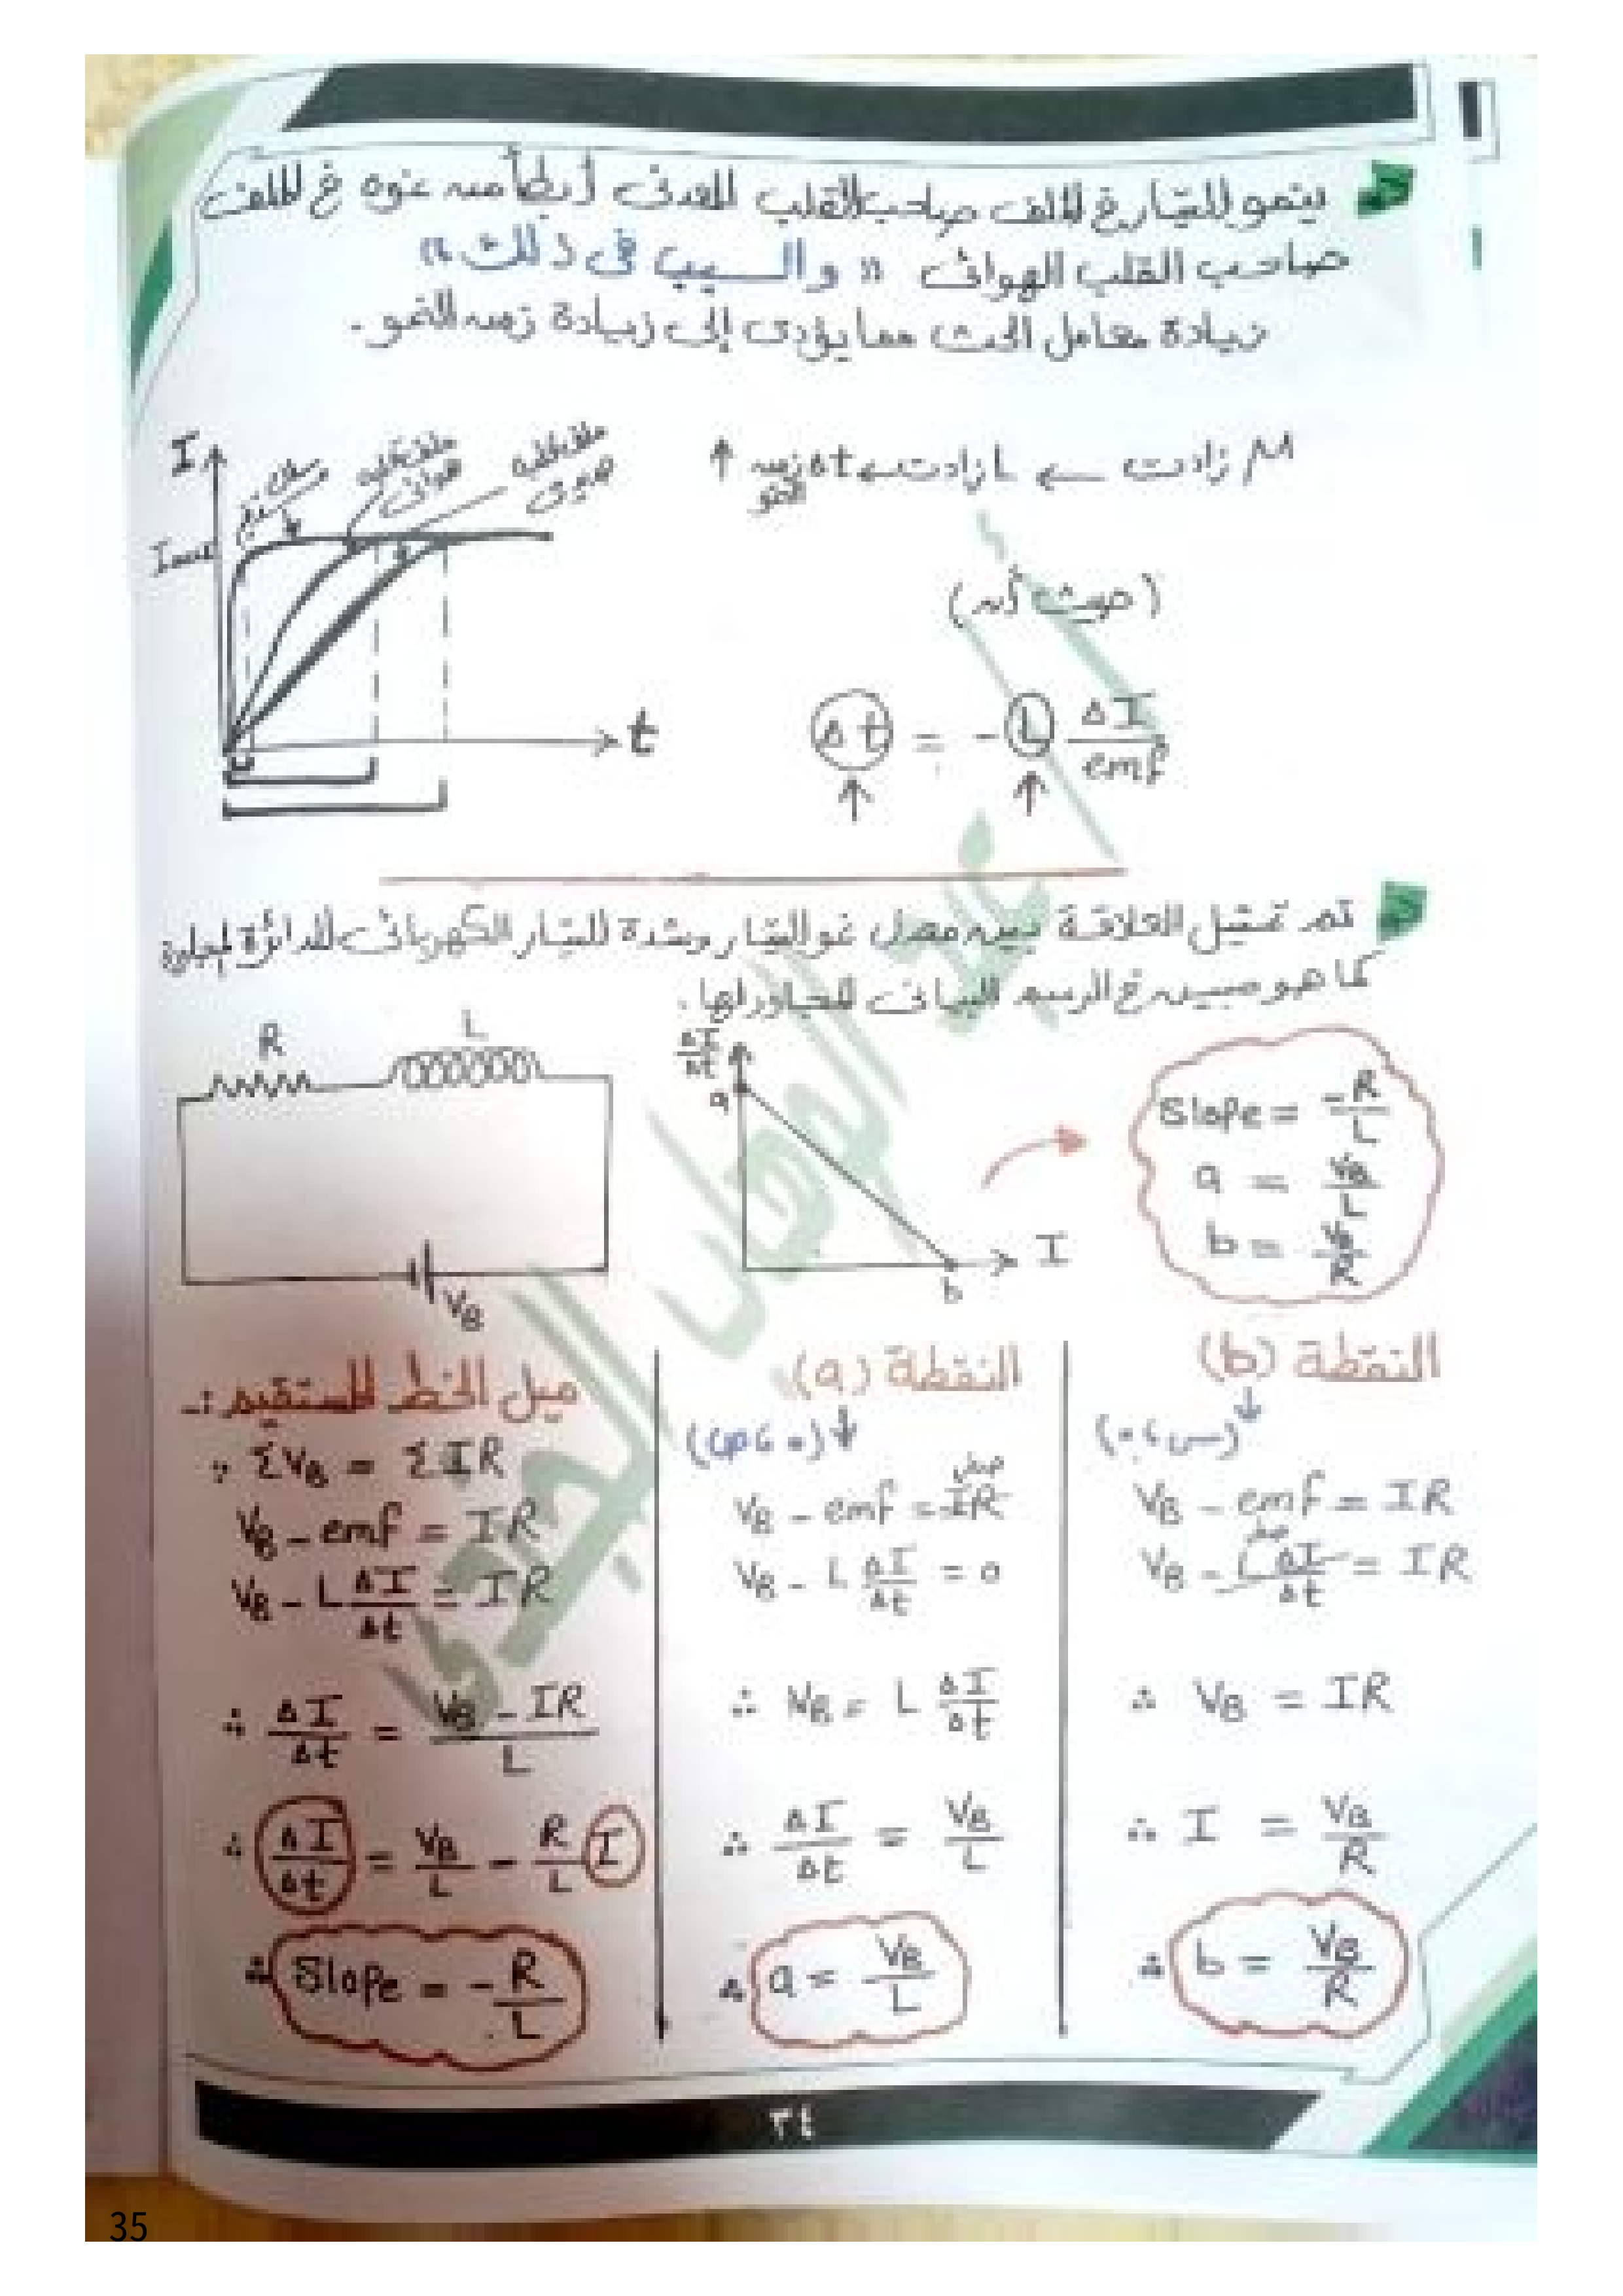 ينمو التيار في الملف صاحب القلب المعدني أبطأ من نموه في الملف
صاحب القلب الهوائي " والسبب في ذلك "
زيادة معامل الحث مما يؤدي إلى زيادة زمن النمو.
μ زادت ← L زادت ← Δt زمن النمو ↑
I
سلك
ملف قلبه هوائي
ملف قلبه
Imax
t
(حيث أن)
Δt = - L ΔI/emf
↑ ↑
تم تمثيل العلاقة بين معدل نمو التيار وشدة التيار الكهربائي للدائرة المجاورة
كما هو مبين في الرسم البياني المجاور لها.
R
L
VB
ΔI/Δt
a
b
I
Slope = -R/L
a = VB/L
b = VB/R
ميل الخط المستقيم :-
∵ ΣVB = ΣIR
VB - emf = IR
VB - L ΔI/Δt = IR
∴ ΔI/Δt = VB - IR/L
∴ ΔI/Δt = VB/L - R/L I
∴ Slope = - R/L
النقطة (a)
↓ (٠ ، ص)
صفر
VB - emf = IR
VB - L ΔI/Δt = 0
∴ VB = L ΔI/Δt
∴ ΔI/Δt = VB/L
∴ a = VB/L
النقطة (b)
↓ (س ، ٠)
VB - emf = IR
صفر
VB - L ΔI/Δt = IR
∴ VB = IR
∴ I = VB/R
∴ b = VB/R
عبد الوهاب البحري
٣٤
35